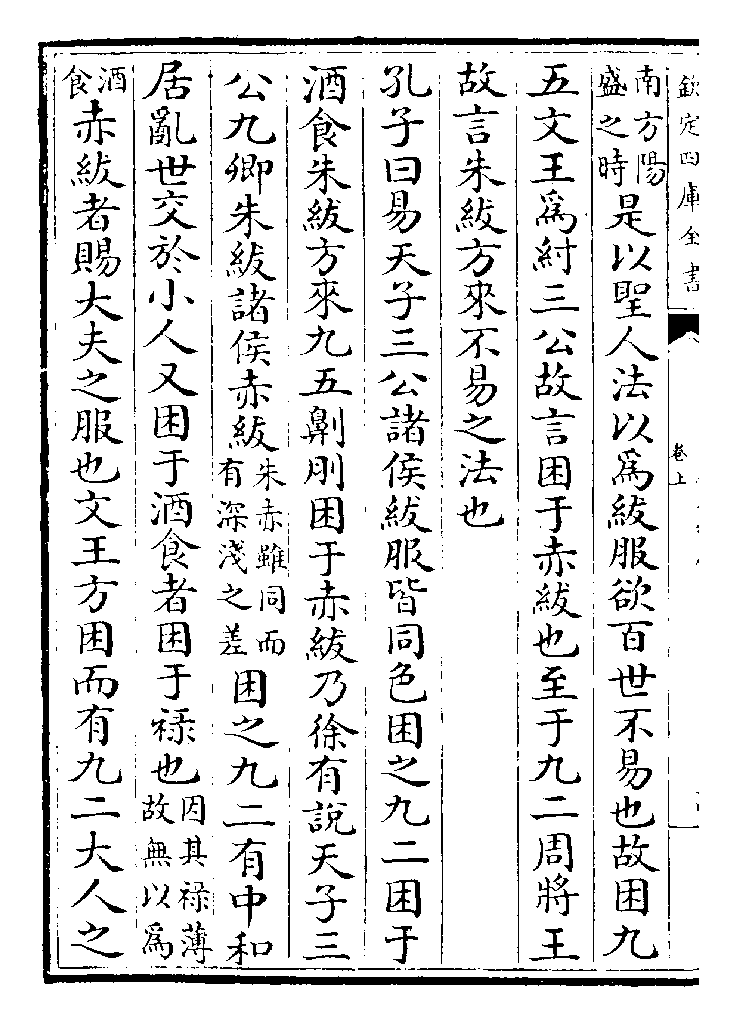 欽定四庫全書
卷上
南方陽盛之時是以聖人法以為紱服欲百世不易也故困九
五文王為紂三公故言困于赤紱也至于九二周將王
故言朱紱方來不易之法也
孔子曰易天子三公諸侯紱服皆同色困之九二困于
酒食朱紱方來九五劓刖困于赤紱乃徐有說天子三
公九卿朱紱諸侯赤紱朱赤雖同而有深淺之差困之九二有中和
居亂世交於小人又困于酒食者困于祿也因其祿薄故無以為
酒食赤紱者賜大夫之服也文王方困而有九二大人之